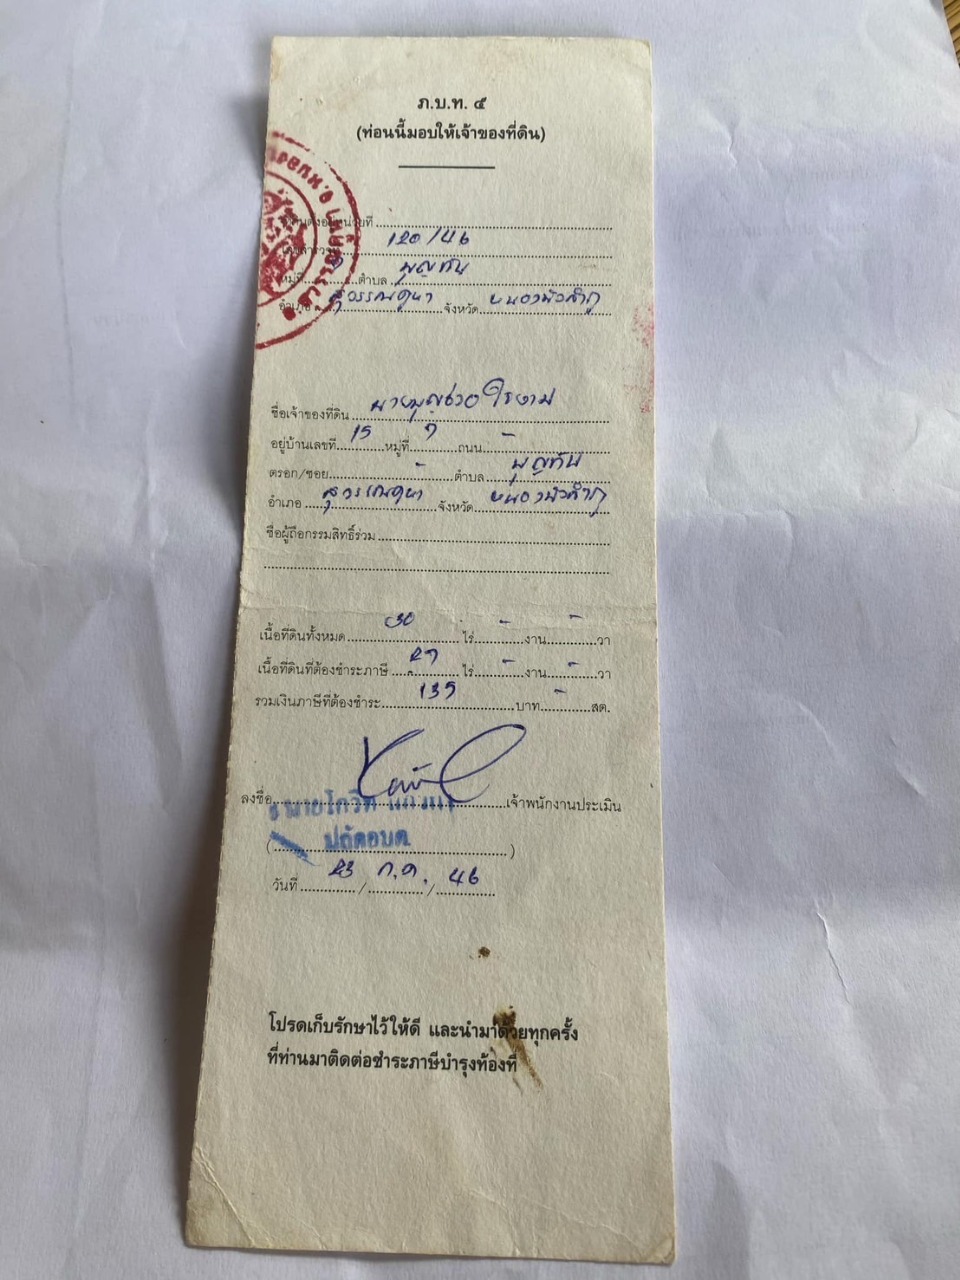 ภ.บ.ท. ๕
(ท่อนนี้มอบให้เจ้าของที่ดิน)
ที่ดินตั้งอยู่หน่วยที่
เลขสำรวจ 120/46
หมู่ที่ ตำบล บุญทัน
อำเภอ สุวรรณคูหา จังหวัด หนองบัวลำภู
ชื่อเจ้าของที่ดิน นายบุญช่วย
อยู่บ้านเลขที่ 15 หมู่ที่ 7 ถนน -
ตรอก/ซอย - ตำบล บุญทัน
อำเภอ สุวรรณคูหา จังหวัด หนองบัวลำภู
ชื่อผู้ถือกรรมสิทธิ์ร่วม
เนื้อที่ดินทั้งหมด 30 ไร่ - งาน - วา
เนื้อที่ดินที่ต้องชำระภาษี 27 ไร่ - งาน - วา
รวมเงินภาษีที่ต้องชำระ 135 บาท - สต.
ลงชื่อ เจ้าพนักงานประเมิน
นายโกวิท
( ปลัดอบต. )
วันที่ 23 / ก.ค. / 46
โปรดเก็บรักษาไว้ให้ดี และนำมาด้วยทุกครั้ง
ที่ท่านมาติดต่อชำระภาษีบำรุงท้องที่